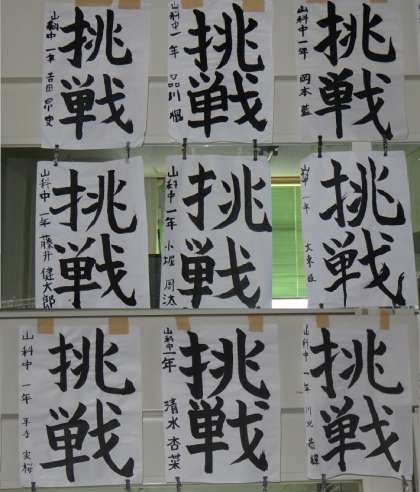 挑戦
山科中 一年 吉田
挑戦
山科中 一年 品川
挑戦
山科中 一年 岡本 藍
挑戦
山科中 一年 藤井 健太郎
挑戦
山科中 一年 小堀 周汰
挑戦
一年
挑戦
山科中 一年
挑戦
山科中 一年 清水 杏菜
挑戦
山科中 一年